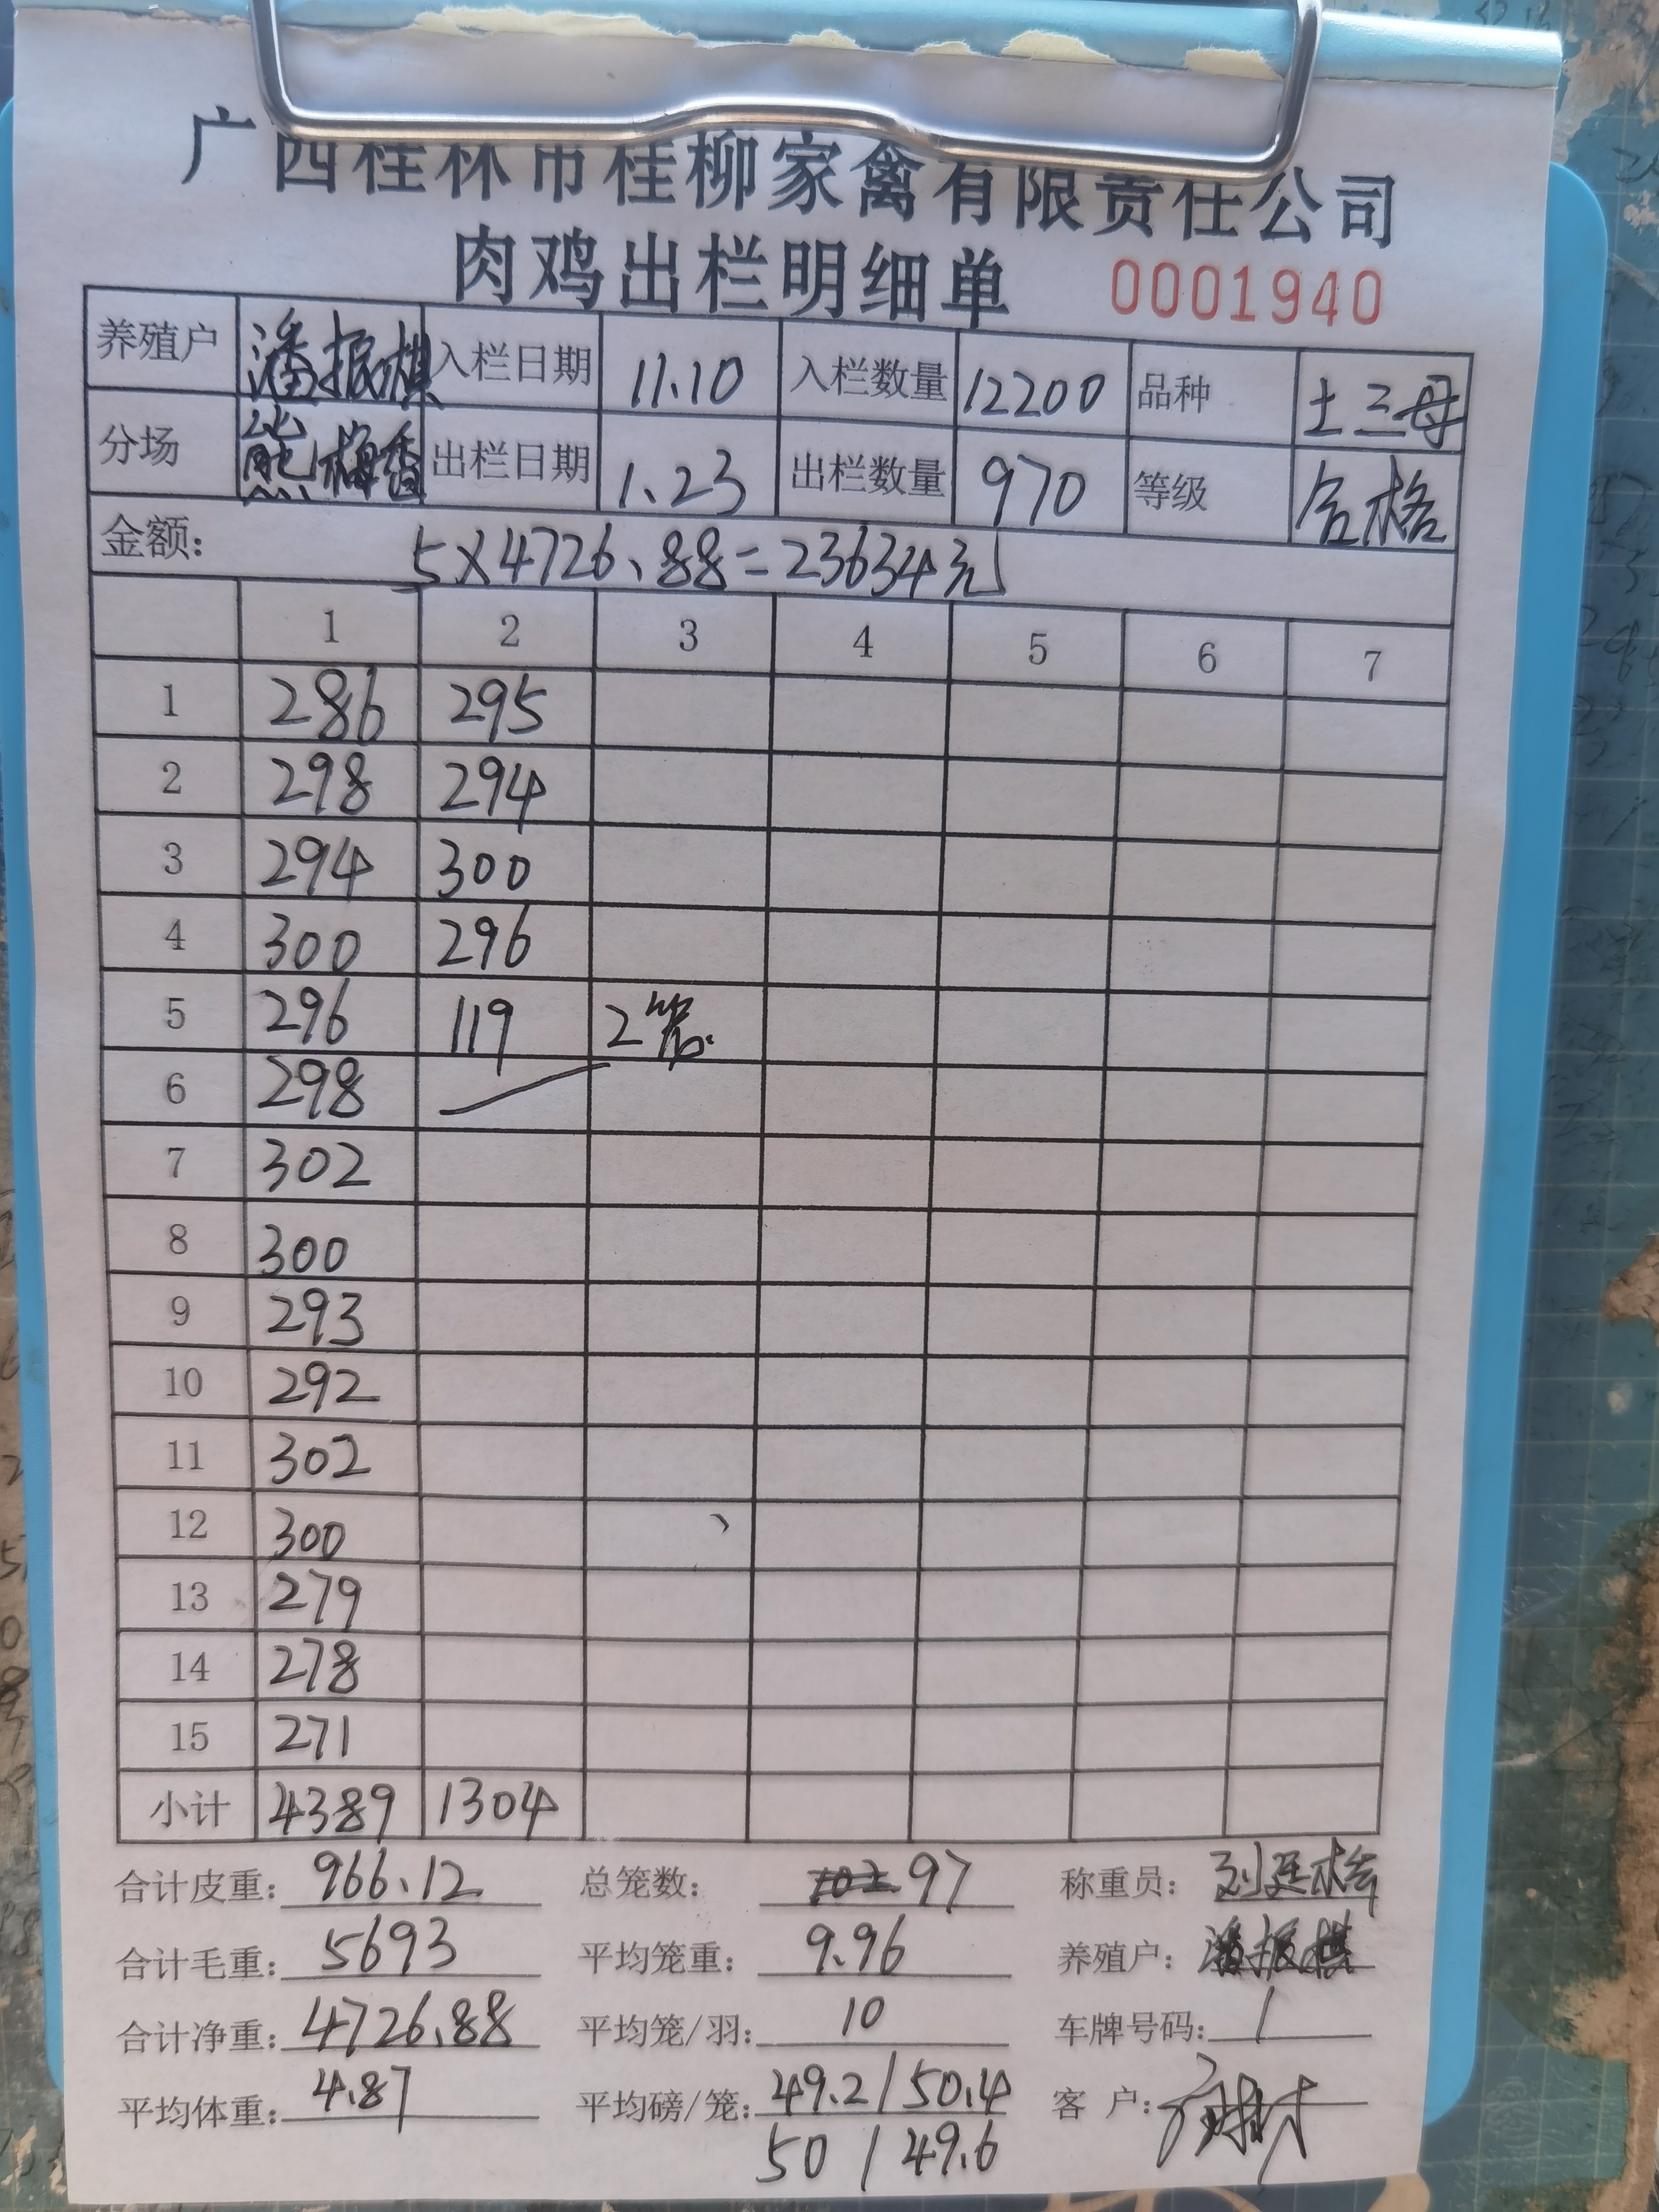 广西桂林市桂柳家禽有限责任公司
肉鸡出栏明细单 0001940
养殖户 潘振棋 入栏日期 11.10 入栏数量 12200 品种 土三母
分场 熊梅香 出栏日期 1.23 出栏数量 970 等级 合格
金额: 5×4726.88=23634元
1 2 3 4 5 6 7
1 286 295
2 298 294
3 294 300
4 300 296
5 296 119 2笼
6 298
7 302
8 300
9 293
10 292
11 302
12 300
13 279
14 278
15 271
小计 4389 1304
合计皮重: 966.12 总笼数: 97 称重员:
合计毛重: 5693 平均笼重: 9.96 养殖户: 潘振棋
合计净重: 4726.88 平均笼/羽: 10 车牌号码: 1
平均体重: 4.87 平均磅/笼: 49.2/50.4 客户:
50/49.6